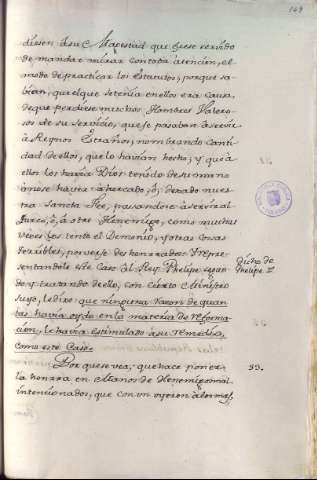 169
diesen à su C. Magestad que fuese servido
de mandar mirar con toda atencion, el
modo de practicar los Estatutos, porque sa-
bian, que el que se tenia en ellos era causa,
de que perdiese muchos Hombres Valero-
sos de su servicio, que se pasaban à servir
à Reynos Estraños, nombrando canti-
dad de ellos, que lo havian hecho; y que à
ellos los havia Dios tenido de su mano
à no se haver ahorcado, ò, dexado nues-
tra Sancta Fee, pasandose à servir al
Turco, ò, à otro Henemigo, como muchas
veces los tentò el Demonio, y otras cosas
terribles, por verse deshonrados: Y repre-
sentandole este Caso al Rey Phelipe segun-
do, y tratando de ello, con cierto Ministro
suyo, le dixo que ninguna razon de quan-
tas havia oydo en la materia de reforma-
cion, le havia estimulado à su remedio,
como este Caso.
Dicho de
Phelipe 2º
Por que se vea, que hace poner
la honrra en Manos de Henemigos mal
intencionados, que con un oyeron à lo mas,
59.